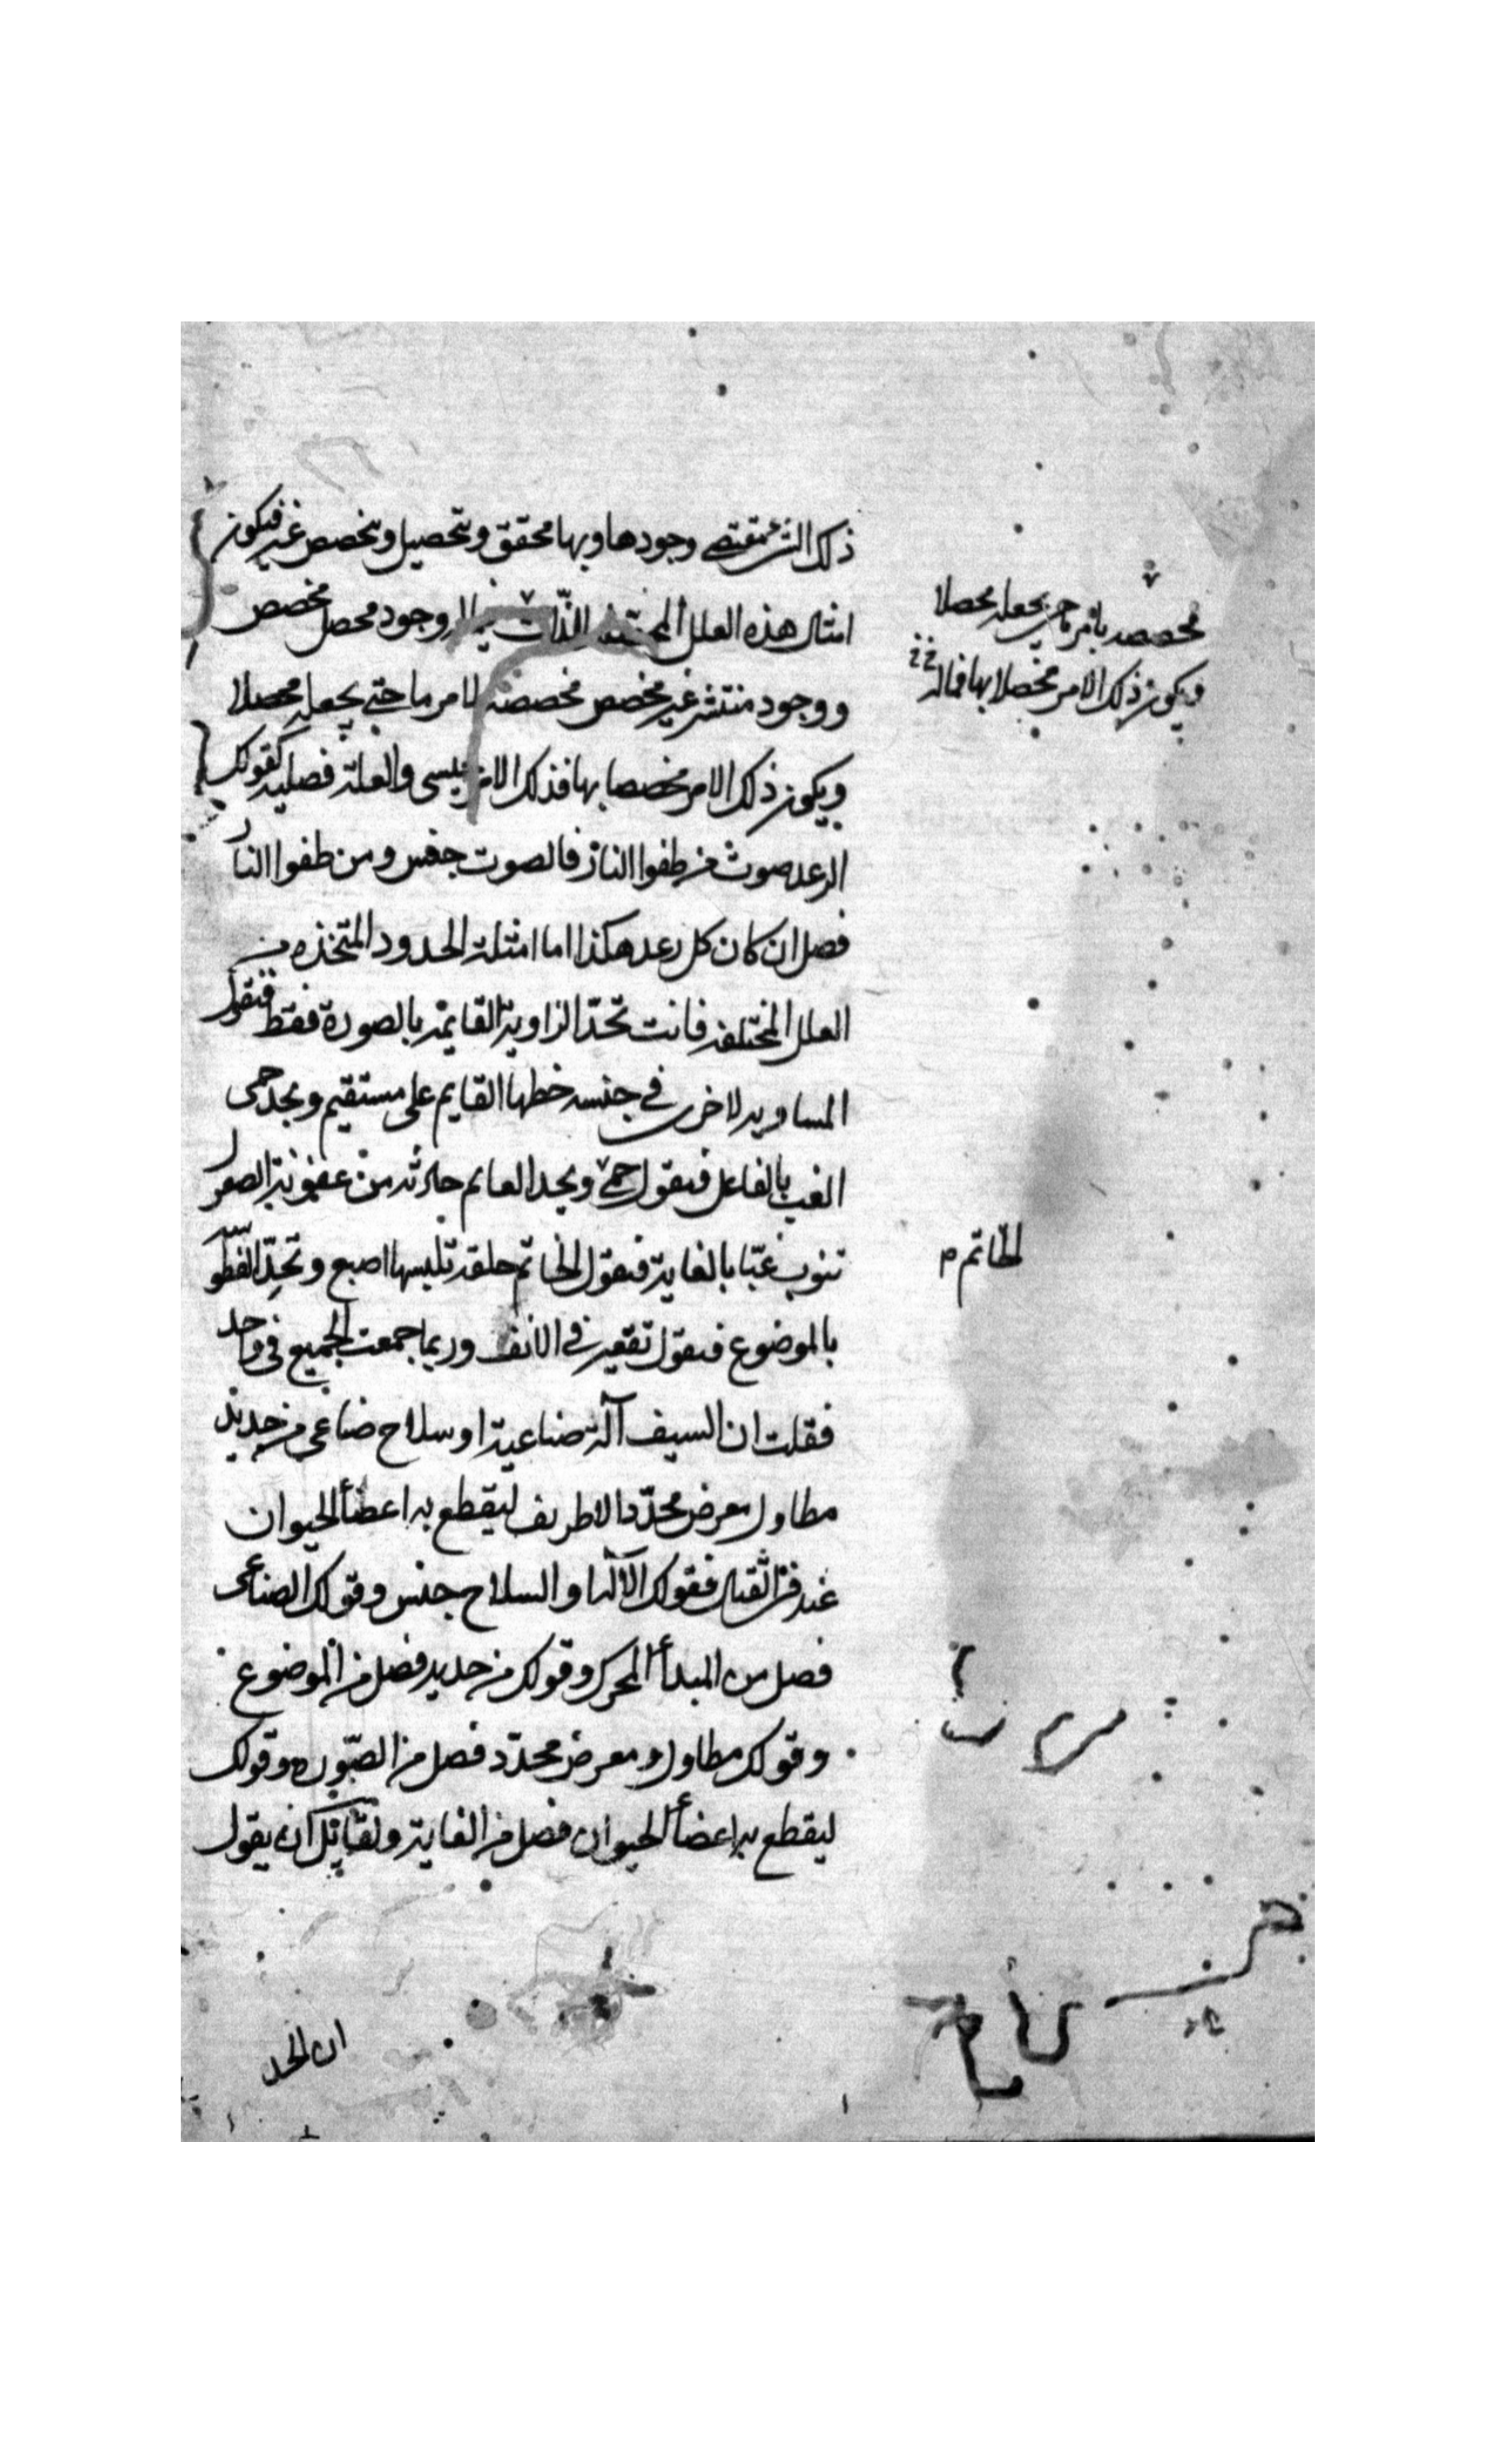 ذلك الشئ مقتضى وجودها وبها محقق وتحصيل وتخصص غير فيكون
امثال هذه العلل المختلفة الذات وجود محصل مخصص
ووجود منتشر غير مخصص مخصصه لامر ما حتى يجعله محصلا
ويكون ذلك الامر مخصصا بها فذلك الامر والعلة فصلية كقولك
الرعد صوت من طفوا النار فالصوت جنس ومن طفوا النار
فصل ان كان كل رعد هكذا اما امثلة الحدود المتخذه من
العلل المختلفه فانت تحدّ الزاوية القايمة بالصورة فقط فتقول
المساويه لاخرى في جنسه خطها القايم على مستقيم ويحد حمى
الغب بالفاعل فتقول حمى ويحد العايم حادثه من عفونة الصفر
تنوب غبّا بالغاية فتقول الخاتم حلقة تلبسها اصبع وتحدّ
بالموضوع فتقول تقعير في الانف وربما جمعت الجميع في واحد
فقلت ان السيف آلة صناعية او سلاح صناعي من حديد
مطاول معرض محدّد الاطراف ليقطع به اعضأ الحيوان
عند القتال فقولك الآلة او السلاح جنس وقولك الصناعي
فصل من المبدأ المحرك وقولك من حديد فصل من الموضوع
وقولك مطاول ومعرض محدّد فصل من الصّوره وقولك
ليقطع به اعضأ الحيوان فصل من الغاية ولقايل ان يقول
مخصصه بامر ما حتى يجعله محصلا
ويكون ذلك الامر محصلا بها فماله
الخاتم م
ان الحد